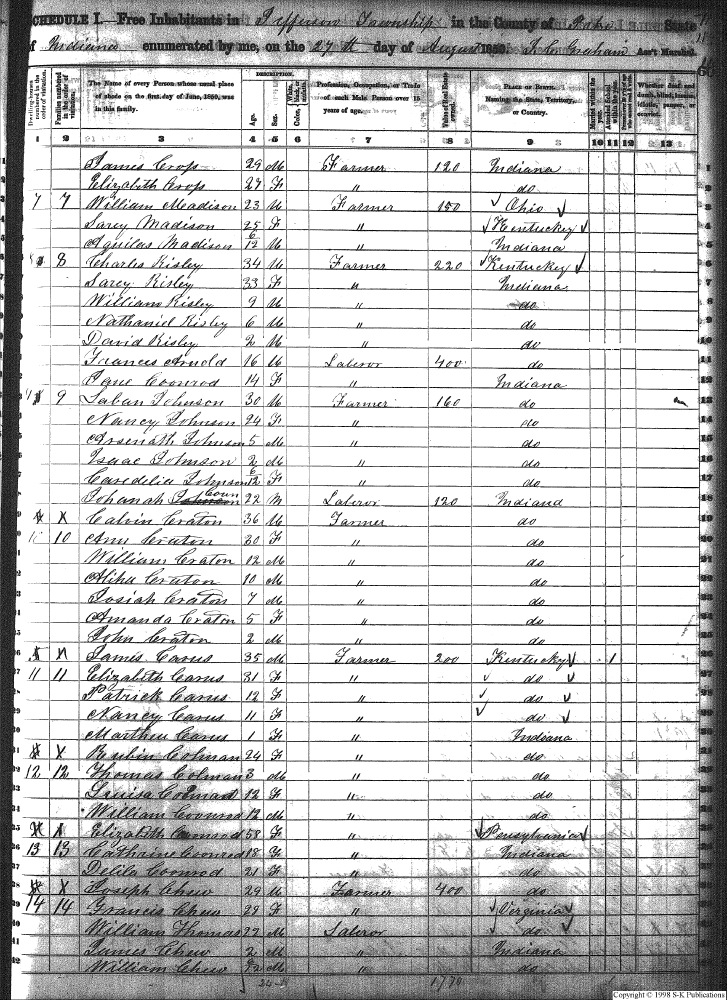 SCHEDULE I.—Free Inhabitants in Jefferson Township in the County of Pike State
of Indiana enumerated by me, on the 27th day of August 1850. Graham Ass't Marshal.
DESCRIPTION.
The Name of every Person whose usual place of abode on the first day of June, 1850, was in this family.
Age. Sex. Color, White, black, or mulatto.
Profession, Occupation, or Trade of each Male Person over 15 years of age.
Value of Real Estate owned.
PLACE OF BIRTH. Naming the State, Territory, or Country.
1 2 3 4 5 6 7 8 9 10 11 12 13
James Crop 29 M Farmer 120 Indiana
Elizabith Crop 27 F " do
7 7 William Madison 23 M Farmer 150 Ohio
Sarey Madison 25 F " Kentuckey
Aquilas Madison 6/12 M " Indiana
8 8 Charles Risley 34 M Farmer 220 Kentuckey
Sarey Risley 33 F " Indiana
William Risley 9 M " do
Nathaniel Risley 6 M " do
David Risley 2 M " do
Francis Arnold 16 M Laberor 400 do
Jane Coonrod 14 F " Indiana
9 Laban Johnson 30 M Farmer 160 do
Nancy Johnson 24 F " do
Arsenath Johnson 5 M " do
Isaac Johnson 2 M " do
Caredelia Johnson 6/12 F "
Johanah Johnson 22 M Laberor 120 Indiana
Calvin Craton 36 M Farmer do
10 10 Ann Craton 30 F " do
William Craton 12 M " do
Alihu Craton 10 M " do
Josiah Craton 7 M do
Amanda Craton 5 F " do
John Craton 2 M " do
James Carus 35 M Farmer 200 Kentuckey 1
11 11 Elizabeth Carus 31 F " do
Patrick Carus 12 F " do
Nancy Carus 11 F " do
Marthew Carus 1 F " Indiana
Rubin Colman 24 F " do
12 12 Thomas Colman 3 M " do
Louisa 12 F " do
William Coonrod 12 M " do
Elizabeth Coonrod 58 F " Pensylvania
13 13 Cathraine Coonrod 18 F " Indiana
Delila Coonrod 21 F " do
Joseph Chew 29 M Farmer 400 do
14 14 Francis Chew 29 F " Virginia
William Thomas 22 M Laberor do
James Chew 2 M " Indiana
William Chew M " do
Copyright © 1998 S-K Publications